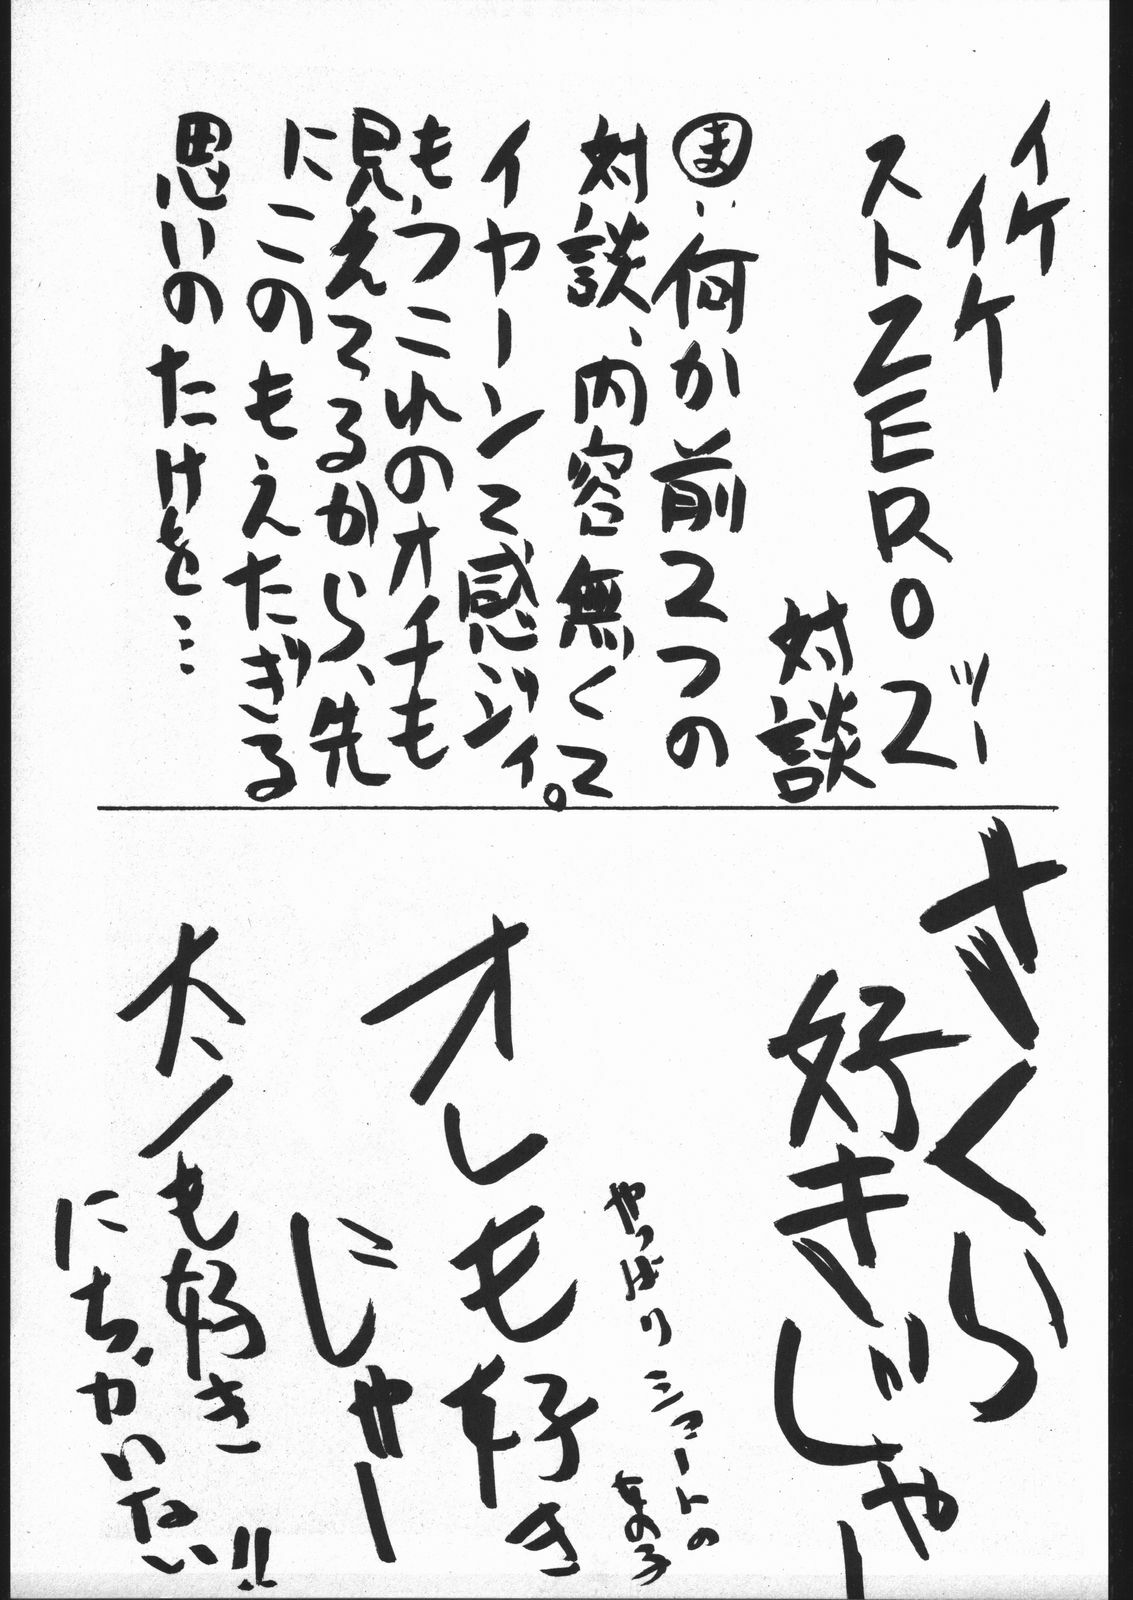 イケ
イケ
ストZERO2
ツー
対談
ま:何か前2つの
対談、内容無くて
イヤーンて感ジィ。
も、つこれのオチも
見えてるから、先
にこのもえたぎる
思いのたけを…
さくら
好きじゃー
やっぱりショートの
女の子
オレも好き
にゃー
大ノも好き
にちがいない!!